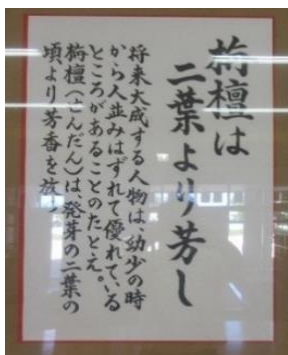 栴檀は
二葉より芳し
将来大成する人物は、幼少の時
から人並みはずれて優れている
ところがあることのたとえ。
栴檀(せんだん)は発芽の二葉の
頃より芳香を放つ